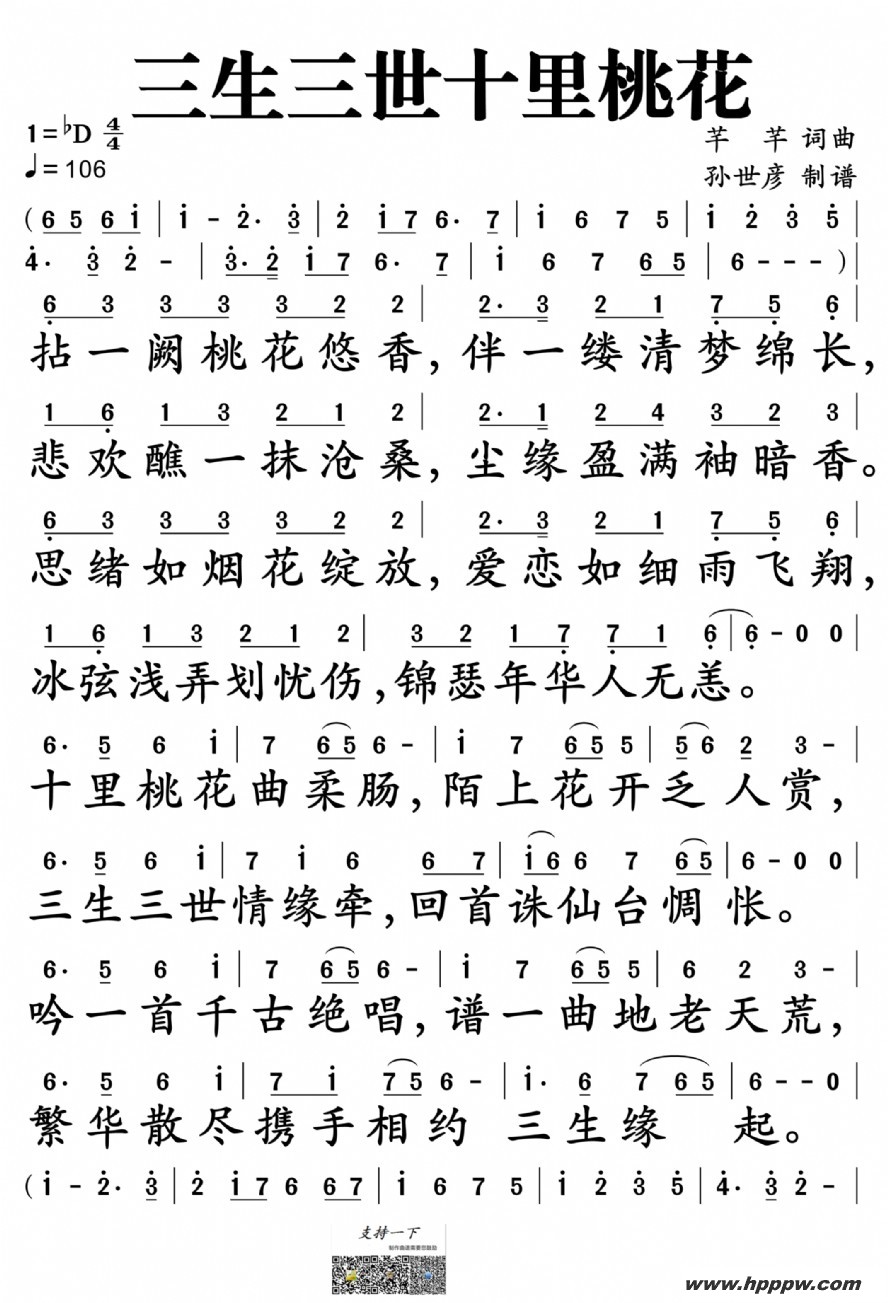 三生三世十里桃花
1=♭D 4/4
芊 芊 词曲
♩=106
孙世彦 制谱
( 6 5 6 i | i - 2· 3 | 2 i 7 6· 7 | i 6 7 5 | i 2 3 5 |
4· 3 2 - | 3· 2 i 7 6· 7 | i 6 7 6 5 | 6 - - - ) |
6 3 3 3 3 2 2 | 2· 3 2 1 7 5 6 |
拈一阙桃花悠香,伴一缕清梦绵长,
1 6 1 3 2 1 2 | 2· 1 2 4 3 2 3
悲欢醮一抹沧桑,尘缘盈满袖暗香。
6 3 3 3 3 2 2 | 2· 3 2 1 7 5 6 |
思绪如烟花绽放,爱恋如细雨飞翔,
1 6 1 3 2 1 2 | 3 2 1 7 7 1 6 | 6 - 0 0 |
冰弦浅弄划忧伤,锦瑟年华人无恙。
6· 5 6 i | 7 6 5 6 - | i 7 6 5 5 | 5 6 2 3 - |
十里桃花曲柔肠,陌上花开乏人赏,
6· 5 6 i | 7 i 6 6 7 | i 6 6 7 6 5 | 6 - 0 0 |
三生三世情缘牵,回首诛仙台惆怅。
6· 5 6 i | 7 6 5 6 - | i 7 6 5 5 | 6 2 3 - |
吟一首千古绝唱,谱一曲地老天荒,
6· 5 6 i | 7 i 7 5 6 - | i· 6 7 6 5 | 6 - - 0 |
繁华散尽携手相约 三生缘 起。
( i - 2· 3 | 2 i 7 6 6 7 | i 6 7 5 | i 2 3 5 | 4· 3 2 - |
支持一下
制作曲谱需要您鼓励
www.hpppw.com